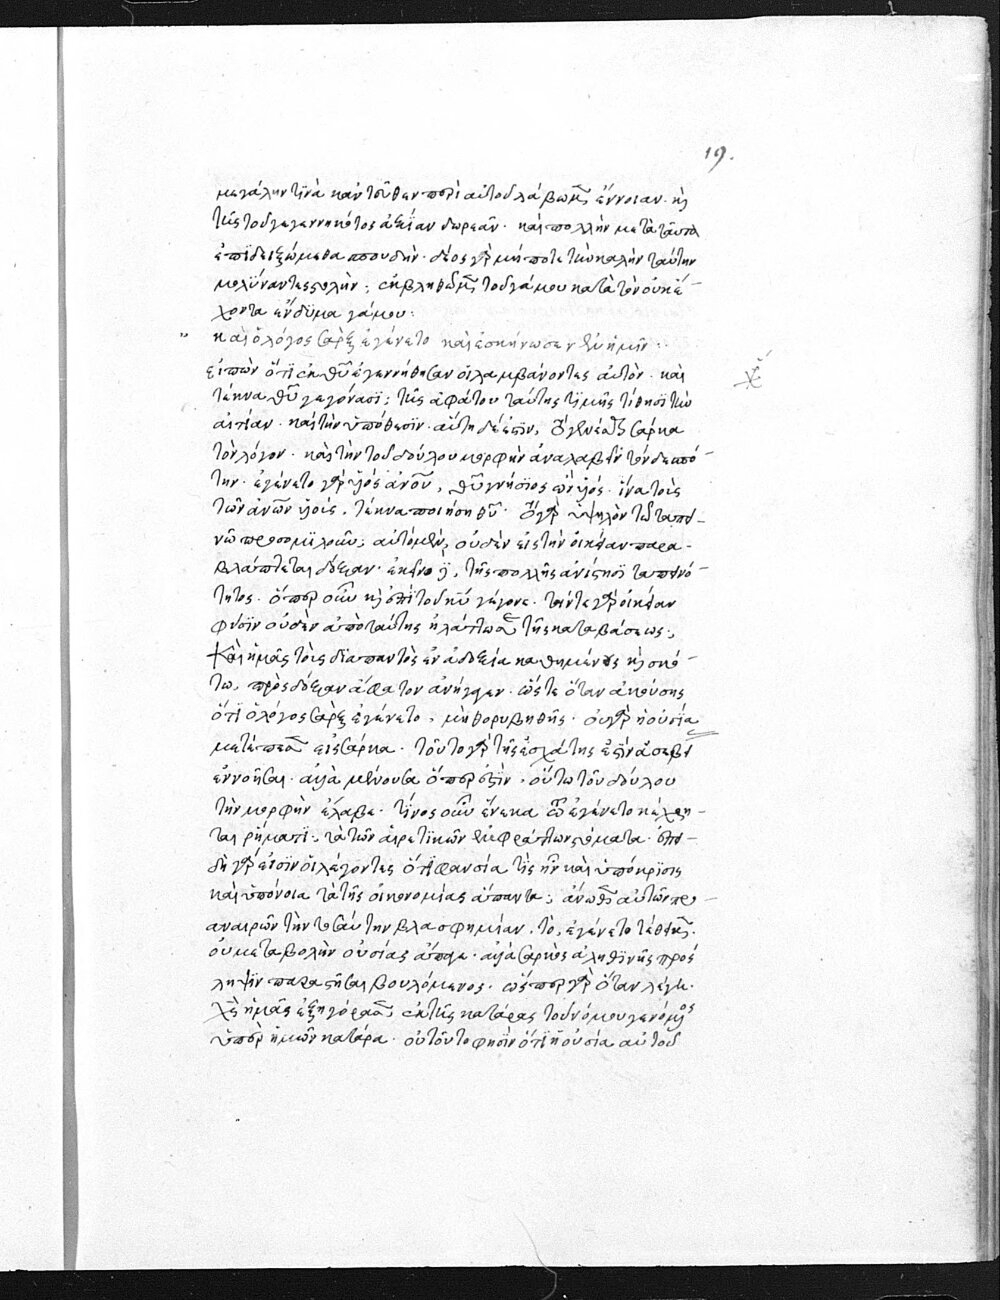 19.
μεγάλην τινὰ κἀντεῦθεν περὶ αὐτοῦ λάβωμεν ἔννοιαν. καὶ
τῆς τοῦ γεγεννηκότος ἀξίαν δωρεᾶν. καὶ πολλὴν μετὰ ταῦτα
ἐπιδειξώμεθα σπουδὴν. δέος γὰρ μήποτε τὴν καλὴν ταύτην
μολύναντες στολὴν, ἐκβληθῶμεν τοῦ γάμου κατὰ τὸν οὐκ ἔ-
χοντα ἔνδυμα γάμου:
" καὶ ὁ λόγος σὰρξ ἐγένετο καὶ ἐσκήνωσεν ἐν ἡμῖν:
εἰπὼν ὅτι ἐκ θῦ ἐγεννήθησαν οἱ λαμβάνοντες αὐτὸν. καὶ
τέκνα θῦ γεγόνασι, τῆς ἀφάτου ταύτης τιμῆς τίθησι τὴν
αἰτίαν. καὶ τὴν ὑπόθεσιν. αὕτη δέ ἐστιν, ὃ γενέσθαι σάρκα
τὸν λόγον. καὶ τὴν τοῦ δούλου μορφὴν ἀναλαβεῖν τὸν δεσπό-
την. ἐγένετο γὰρ υἱός ἀνοῦ, θῦ γνήσιος ὢν υἱός. ἵνα τοὺς
τῶν ἀνῶν υἱοὺς, τέκνα ποιήσῃ θῦ. ὃ γὰρ ὑψηλὸν τῷ ταπει-
νῷ προσομιλοῦν, αὐτὸ μὲν, οὐδὲν εἰς τὴν οἰκείαν παρα-
βλάπτεται δόξαν. ἐκεῖνο δὲ, τῆς πολλῆς ἀνίστησι ταπεινό-
τητος. ὅπερ οὖν καὶ ἐπὶ τοῦ κυ γέγονε. τήν τε γὰρ οἰκείαν
φύσιν οὐδὲν ἀπὸ ταύτης ἠλάττωσε τῆς καταβάσεως,
Καὶ ἡμᾶς τοὺς διαπαντὸς ἐν ἀδοξία καθημένους καὶ σκό-
τω, πρὸς δόξαν ἄφατον ἀνήγαγεν. ὥστε ὅταν ἀκούσης
ὅτι ὁ λόγος σὰρξ ἐγένετο, μὴ θορυβηθῆς. οὐ γὰρ ἡ οὐσία
μετέπεσεν εἰς σάρκα. τοῦτο γὰρ τῆς ἐσχάτης ἐστὶν ἀσεβείας
ἐννοῆσαι. ἀλλὰ μένουσα ὅπερ ἐστὶν, οὕτω τοῦ δούλου
τὴν μορφὴν ἔλαβε. τίνος οὖν ἕνεκα τῶ ἐγένετο κέχρη-
ται ῥήματι. τὰ τῶν αἱρετικῶν ἐμφράττων στόματα. ἐπει-
δὴ γὰρ εἰσὶν οἱ λέγοντες ὅτι φαντασία τὶς ἦν καὶ ὑπόκρισις
καὶ ὑπόνοια τὰ τῆς οἰκονομίας ἅπαντα, ἄνωθεν αὐτῶν προ-
αναιρῶν τὴν τοιαύτην βλασφημίαν, τὸ, ἐγένετο τέθεικεν.
οὐ μεταβολὴν οὐσίας ἄπαγε. ἀλλὰ σαρκὸς ἀληθινῆς πρόσ
ληψιν παραστῆσαι βουλόμενος. ὥσπερ γὰρ ὅταν λέγει.
χς ἡμᾶς ἐξηγόρασεν ἐκ τῆς κατάρας τοῦ νόμου γενόμενος
ὑπὲρ ἡμῶν κατάρα. οὐ τοῦτο φησὶν ὅτι ἡ οὐσία αὐτοῦ